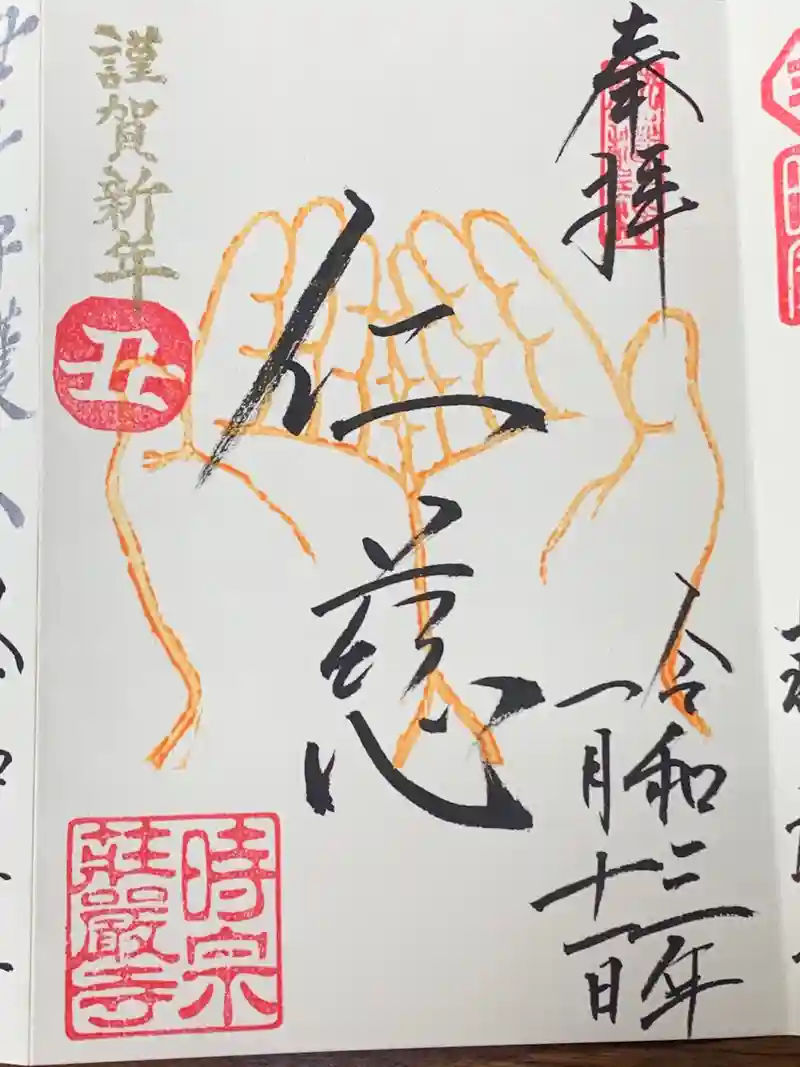 奉拝
令和三年
一月十一日
仁慈
謹賀新年
丑
時宗
荘厳寺